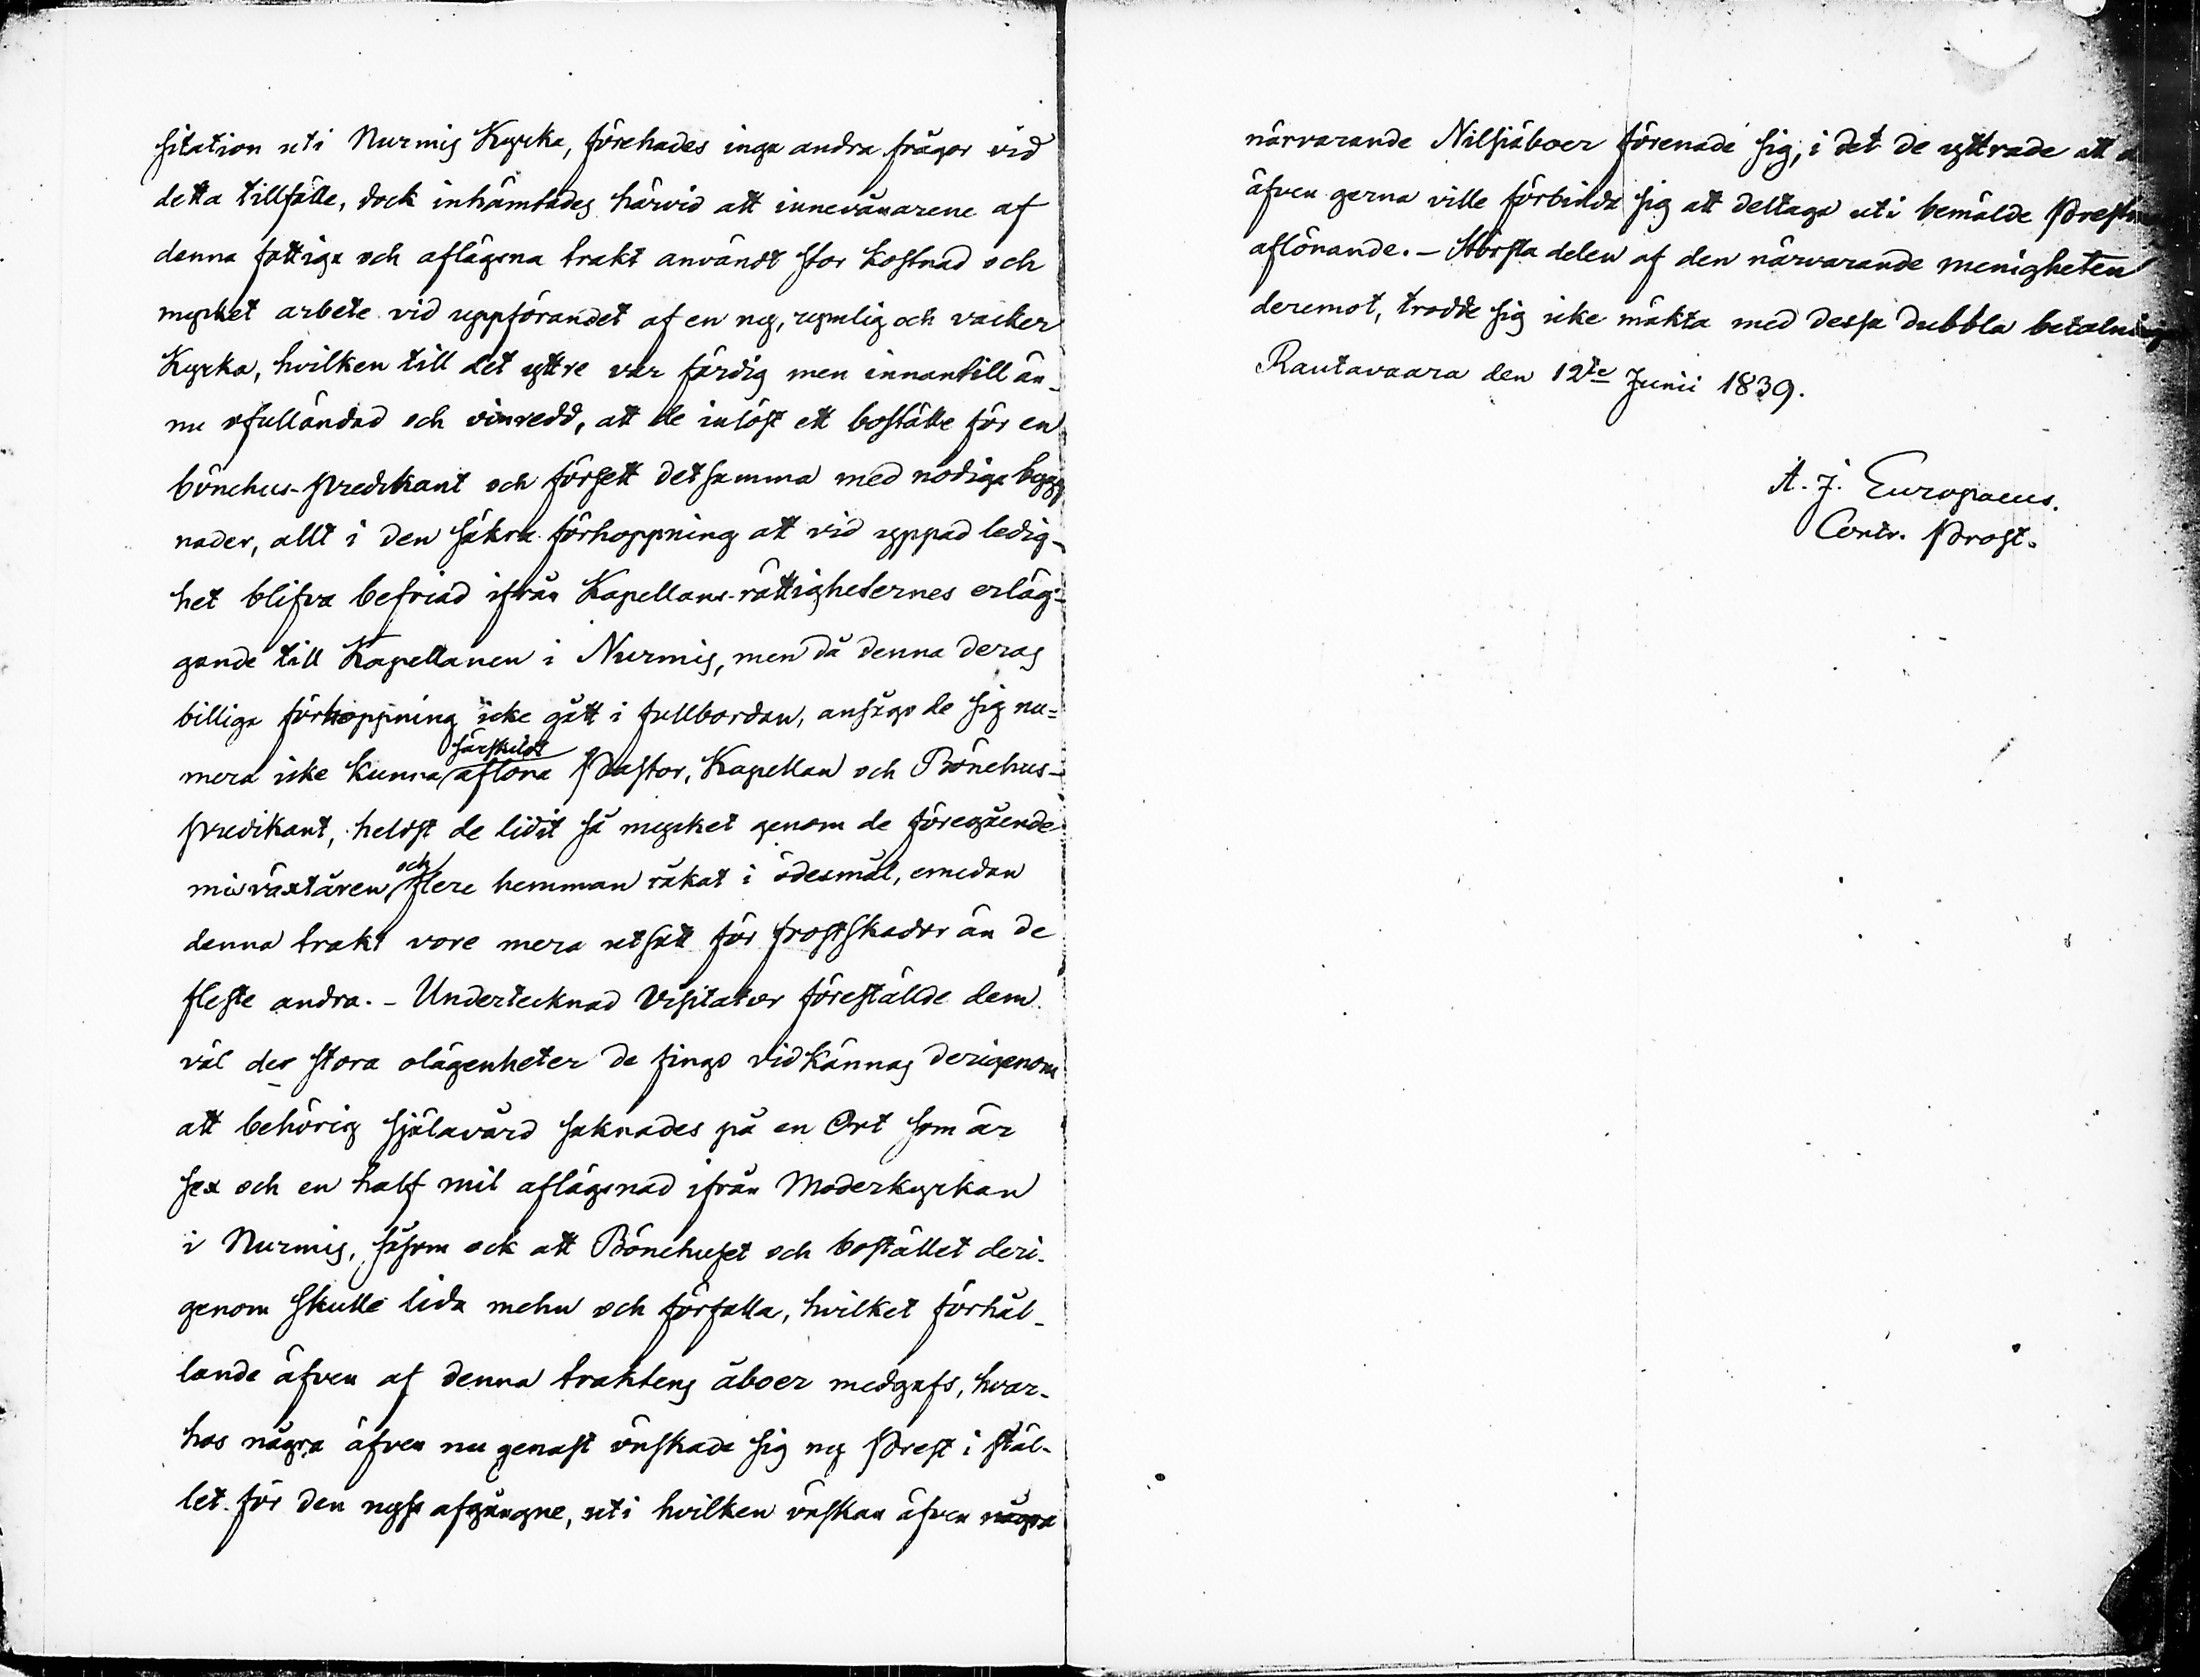 sitation uti Nurmis Kyrka, förehades inga andra frågor vid
detta tillfälle, dock inhämtades härvid att innevånarene af
denna fattiga och aflägsna trakt användt stor kostnad och
mycket arbete vid uppförandet af en ny, rymlig och vacker
Kyrka, hvilken till det yttre var färdig men innantill än-
nu ofulländad och oinredd, att de inlöst ett boställe för en
bönehus-predikant och försett detsamma med nödiga bygg
nader, allt i den säkra förhoppning att vid yppad ledig-
het blifva befriad ifrån Kapellans-rättigheternes erläg-
gande till Kapellanen i Nurmis, men då denna deras
billiga förhoppning icke gått i fullbordan, ansågo de sig nu-
mera icke kunna särskildt aflöna Pastor, Kapellan och Bönehus-
predikant, heldst de lidit så mycket genom de föregående
misväxtåren och flere hemman råkat i ödesmål, emedan
denna trakt vore mera utsatt för frostskador än de
fleste andra. - Undertecknad Visitator förestälde dem
väl de stora olägenheter de finge vidkännas derigenom
att behörig själavård saknades på en Ort som är
sex och en half mil aflägsnad ifrån Moderkyrkan
i Nurmis, såsom ock att Bönehuset och bostället deri-
genom skulle lida mehn och förfalla, hvilket förhål-
lande äfven af denna traktens åboer medgafs, hvar-
hos några äfven nu genast önskade sig ny Prest i stäl-
let för den nyss afgångne, uti hvilken önskan äfven några
närvarande Nilsiäboer förenade sig, i det de yttrade att
äfven gerna ville förbinda sig att deltaga uti bemälde Prestens
aflönande. - Största delen af den närvarande menigheten
deremot, trodde sig icke mäkta med dessa dubbla betalningar
Rautavaara den 12te Junii 1839.
A. J. Europaeus.
Contr. Prost.